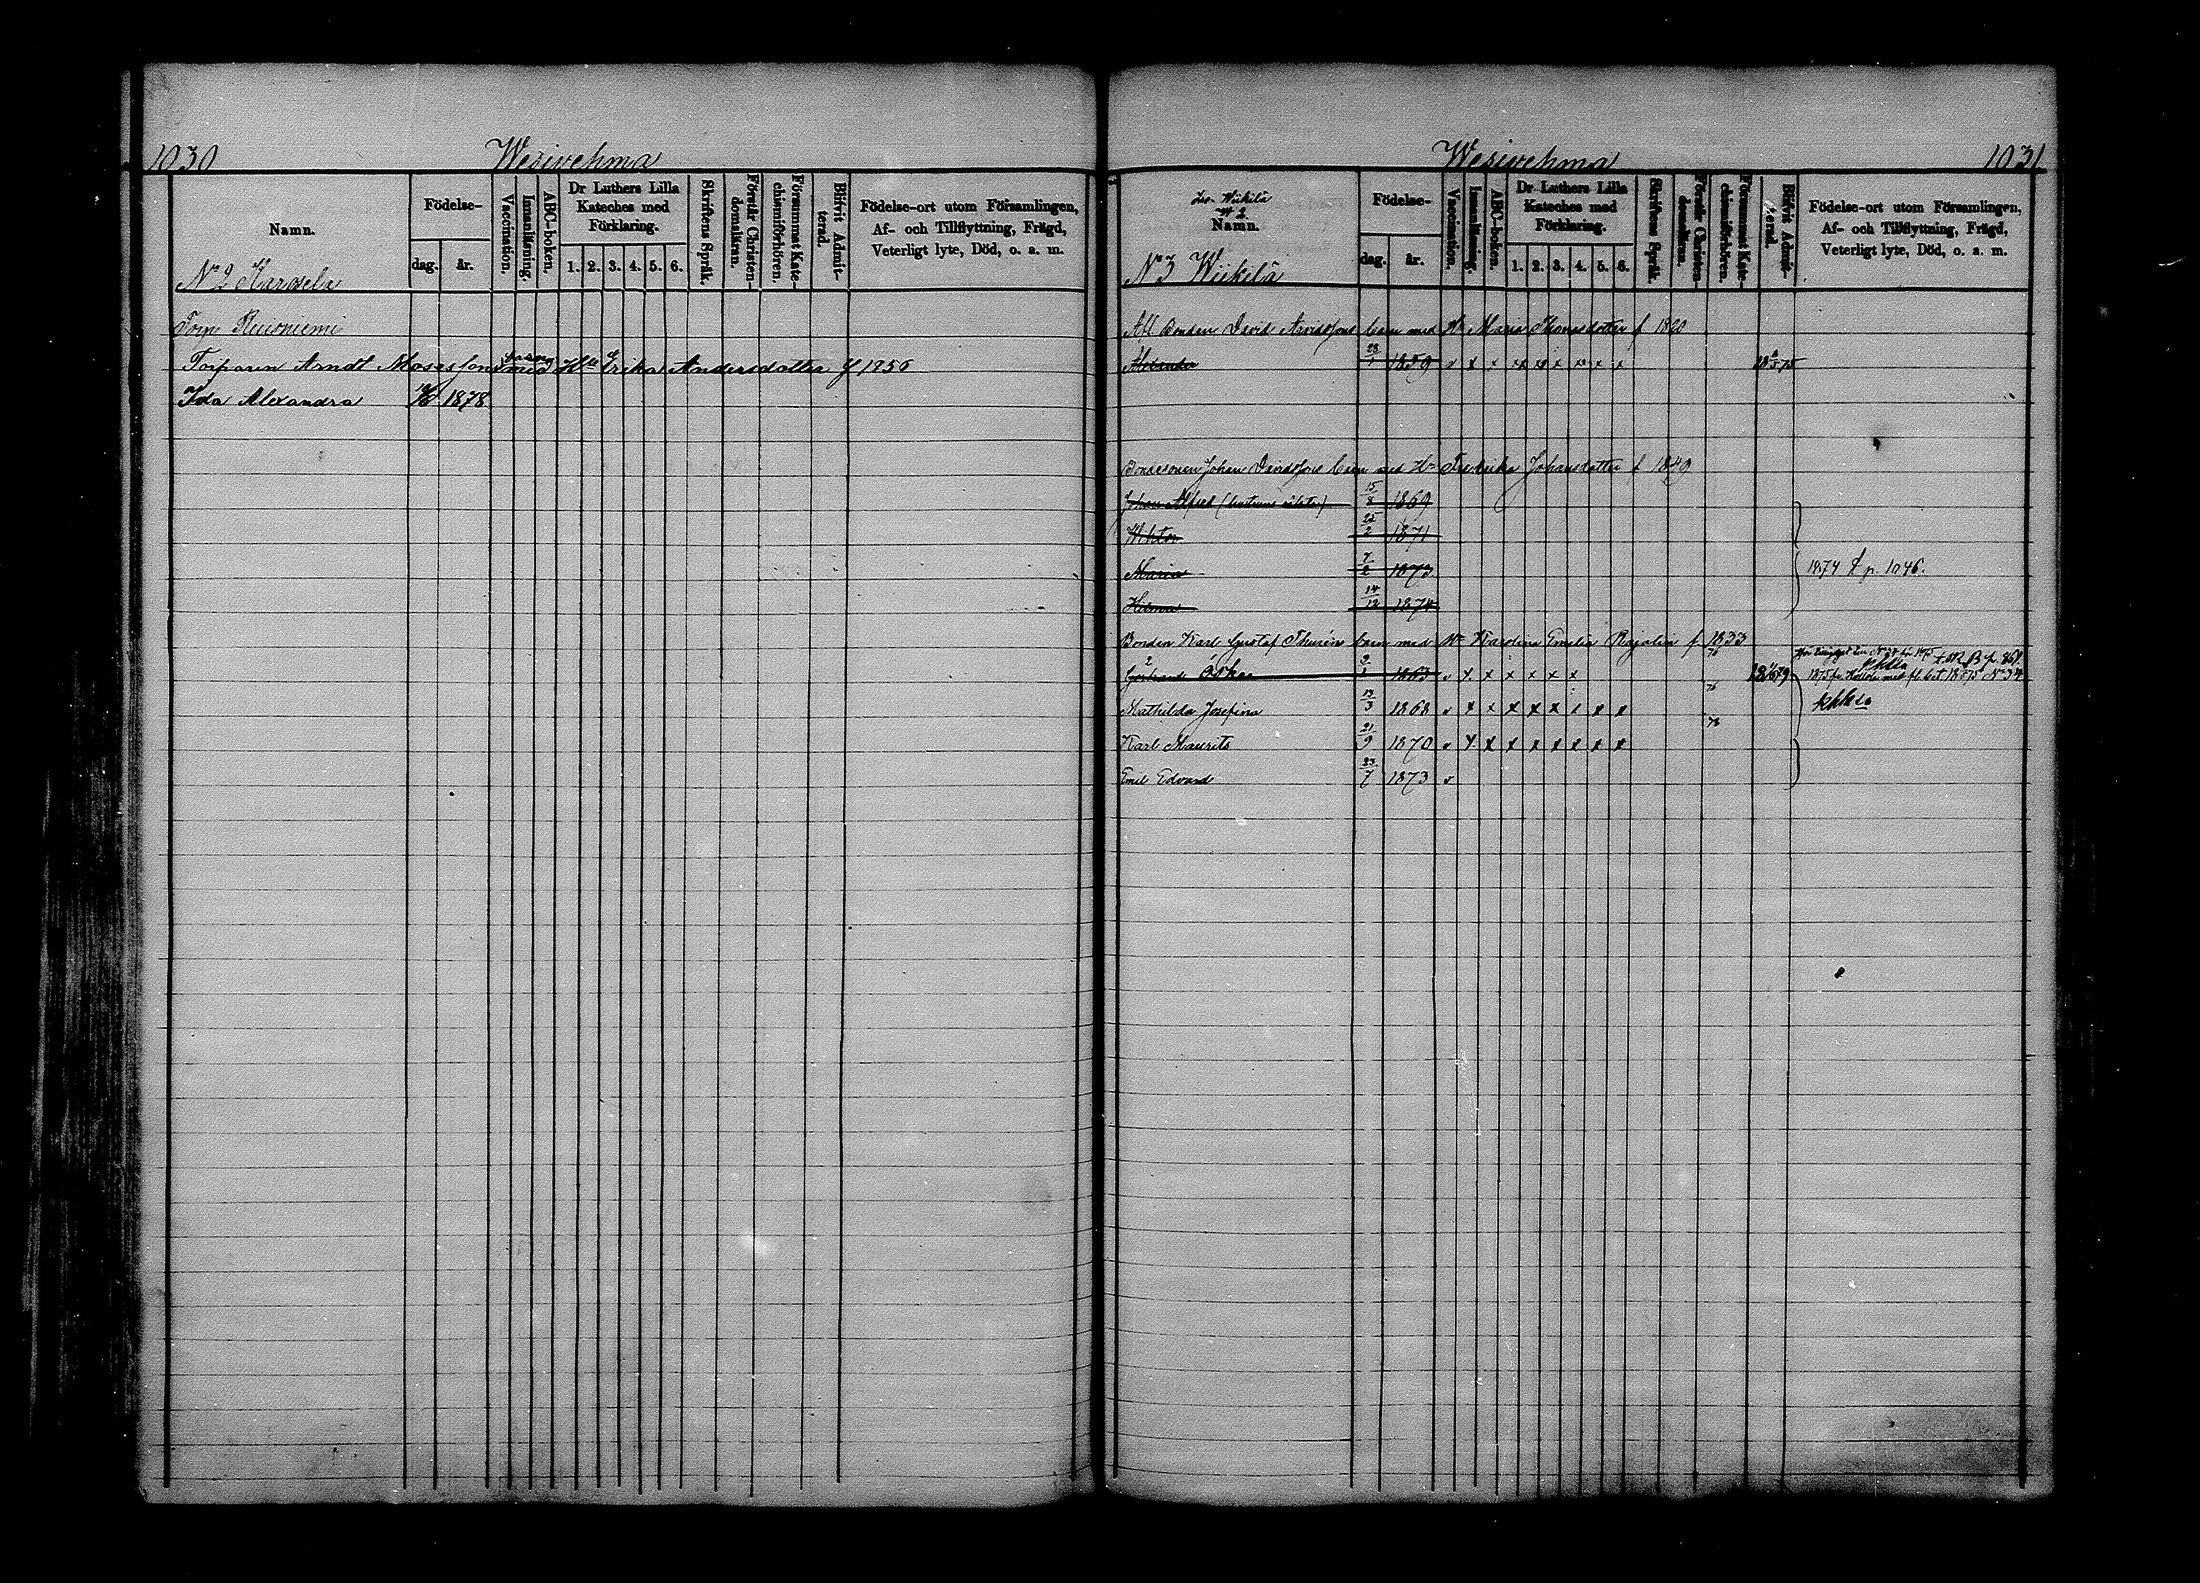 1030
Wesivehma
Namn.
Födelse-
dag.
år.
Vaccination.
Innanläsning.
ABC-boken.
Dr Luthers Lilla
Kateches med
Förklaring.
1. 2. 3. 4. 5. 6.
Skriftens Språk.
Förstår Christen-
domsläran.
Försummat Kate-
chismiförhören.
Blifvit Admit-
terad.
Födelse-ort utom Församlingen,
Af- och Tillflyttning, Frägd,
Veterligt lyte, Död, o. a. m.
N 2
Torp
Torparen Arndt Mosesfons barn med Hu Erika Andersdotter f 1856
Ida Alexandra 1878
Wesivehma
1031
Wiikilä
N 2
Namn.
Födelse-
dag.
år.
Vaccination.
Innanläsning.
ABC-boken.
Dr Luthers Lilla
Kateches med
Förklaring.
1. 2. 3. 4. 5. 6.
Skriftens Språk.
Förstår Christen-
domsläran.
Försummat Kate-
chismiförhören.
Blifvit Admit-
terad.
Födelse-ort utom Församlingen,
Af- och Tillflyttning, Frägd,
Veterligt lyte, Död, o. a. m.
N 3 Wiikilä
Afl Bonden David Arvidsfons barn med Hu Maria Thomasdotter f 1820
Alexander 28/1 1859 v x x x x x x x x
Bondesonen Johan Davidsfons barn med Hu Fredrika Johansdotter f 1849
Johan Alfred 15/8 1869
Wiktor 22/2 1871
Maria 7/2 1873
1874 p. 1046.
Hilma 14/12 1874
Bonden Karl Gustaf Thurens barn med Hu Karolina Emelia f 1833
Oskar 1863 v x x x x x x
Mathilda Josefina 13/3 1868 v x x x x x x x x 76
Karl Maurits 21/9 1870 v x x x x x x x x 78
Emil Edvard 23/7 1873 v